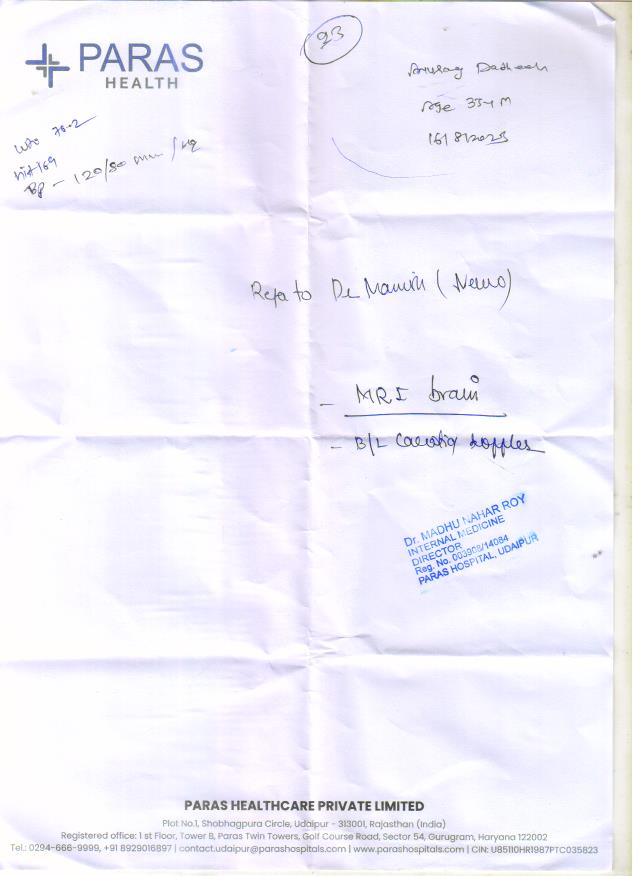 93
PARAS
HEALTH
Anurag Dadheech
Age 35Y M
16/8/2023
Wt 78.2
Hit 169
BP - 120/80 mm/Hg
Refer to Dr Manish (Neuro)
- MRI brain
- B/L Carotid Doppler
Dr. MADHU NAHAR ROY
INTERNAL MEDICINE
DIRECTOR
Reg. No. 003908/14084
PARAS HOSPITAL, UDAIPUR
PARAS HEALTHCARE PRIVATE LIMITED
Plot No.1, Shobhagpura Circle, Udaipur - 313001, Rajasthan (India)
Registered office: 1 st Floor, Tower B, Paras Twin Towers, Golf Course Road, Sector 54, Gurugram, Haryana 122002
Tel.: 0294-666-9999, +91 8929016897 | contact.udaipur@parashospitals.com | www.parashospitals.com | CIN: U85110HR1987PTC035823